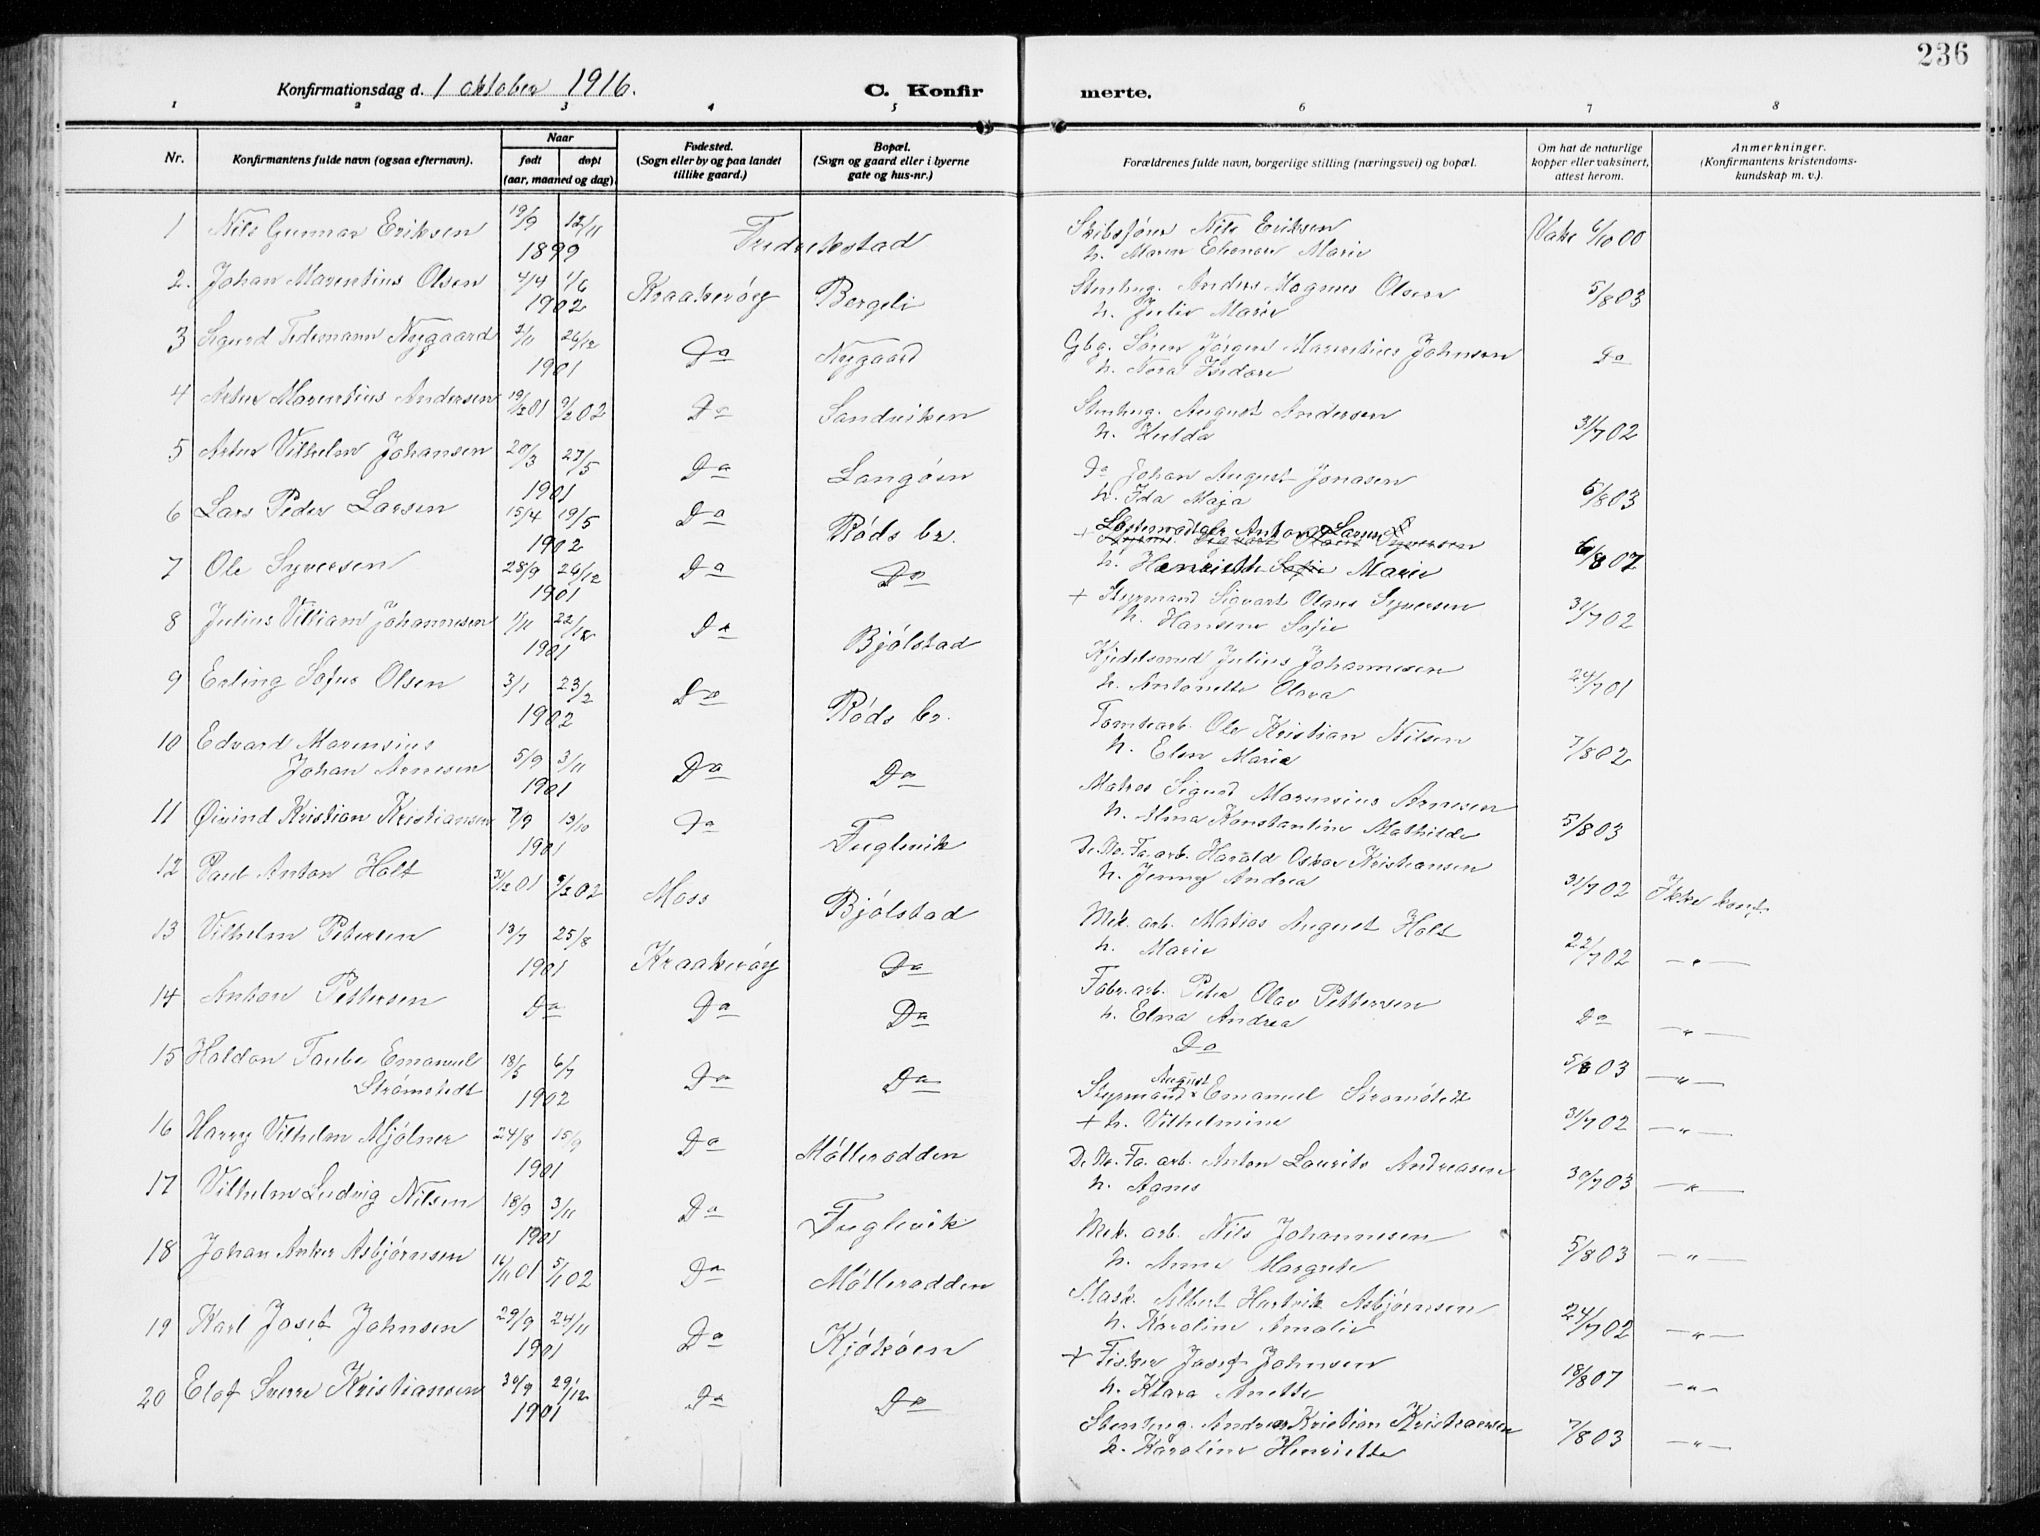 236
Konfirmationsdag d. 1 oktober 1916.
C. Konfir
merte.
1 2 3 4 5 6 7 8
Nr.
Konfirmantens fulde navn (ogsaa efternavn).
Naar
født døpt
(aar, maaned og dag).
Fødested.
(Sogn eller by og paa landet
tillike gaard.)
Bopæl.
(Sogn og gaard eller i byerne
gate og hus-nr.)
Forældrenes fulde navn, borgerlige stilling (næringsvei) og bopæl.
Om hat de naturlige
kopper eller vaksinert,
attest herom.
Anmerkninger.
(Konfirmantens kristendoms-
kundskap m. v.).
1 Nils Gunnar Eriksen 19/9 12/11 1899 Fredrikstad
Skibsfører Nils Eriksen
h. Maren Elenore Marie
Vaks 6/10 00
2. Johan Marentius Olsen 4/4 1/6 1902 Kraakerøy Bergli
Stenhug. Anders Magnus Olsen
h. Julie Marie
5/8 03
3 Sigurd Tidemann Nygaard 2/11 26/12 1901 Do Nygaard
Gbg. Søren Jørgen Marentius Johnsen
h. Nora Isidore
Do
4 Artur Marentius Andersen 19/12 01 9/2 02 Do Sandviken
Stenhug. August Andersen
h. Hulda
31/7 02
5 Artur Vilhelm Johansen 20/3 27/5 1901 Do Langøen
Do Johan August Jonasen
h. Ida Maja
5/8 03
6 Lars Peder Larsen 15/4 19/5 1902 Do Røds br.
+ Anton Larsen
h. Henriette Marie
6/8 07
7 Ole Syversen 28/9 26/12 1901 Do Do
+ Styrmand Sigvart Olaus Syversen
h. Hansine Sofie
31/7 02
8 Julius Villiam Johannesen 7/11 22/12 1901 Do Bjølstad
Kjedelsmed Julius Johannesen
h. Antonette Olava
24/7 01
9 Erling Sofus Olsen 3/1 23/2 1902 Do Røds br.
Tomtearb. Ole Kristian Nilsen
h. Elen Marie
7/8 02
10 Edvard Marensius
Johan Arnesen 5/9 3/11 1901 Do Do
Matros Sigurd Marensius Arnesen
h. Alma Konstantine Mathilde
5/8 03
11 Øivind Kristian Kristiansen 7/9 13/10 1901 Do Fuglevik
De No. Fa. arb. Harald Oskar Kristiansen
h. Jenny Andrea
31/7 02 Ikke konf.
12 Paul Anton Holt 31/12 01 9/2 02 Moss Bjølstad
Mek. arb. Matias August Holt
h. Marie
22/7 02 — " —
13 Vilhelm Petersen 13/7 25/8 1901 Kraakerøy Do
Fabr. arb. Peter Olav Pettersen
h. Elna Andrea
Do — " —
14 Anton Pettersen Do Do Do
Do
5/8 03 — " —
15 Haldon Taube Emanuel
Strømstedt 18/5 6/7 1902 Do Do
Styrmand August Emanuel Strømstedt
+ h. Vilhelmine
31/7 02 — " —
16 Harry Vilhelm Mjølner 24/8 15/9 1901 Do Mølleradden
De No. Fa. arb. Anton Laurits Andreasen
h. Agnes
30/7 03 — " —
17 Vilhelm Ludvig Nilsen 18/9 3/11 1901 Do Fuglevik
Mek. arb. Nils Johannesen
h. Anne Margrete
5/8 03 — " —
18 Johan Anker Asbjørnsen 16/11 01 5/1 02 Do Mølleradden
Mask. Albert Hartvik Asbjørnsen
h. Karoline Amalie
24/7 02 — " —
19 Karl Josef Johnsen 29/9 24/11 1901 Do Kjøkøen
+ Fisker Josef Johnsen
h. Klara Anette
18/8 07 — " —
20 Elof Sverre Kristiansen 30/9 29/12 1901 Do Do
Stenhug. Andreas Kristian Kristiansen
h. Karoline Henriette
7/8 03 — " —